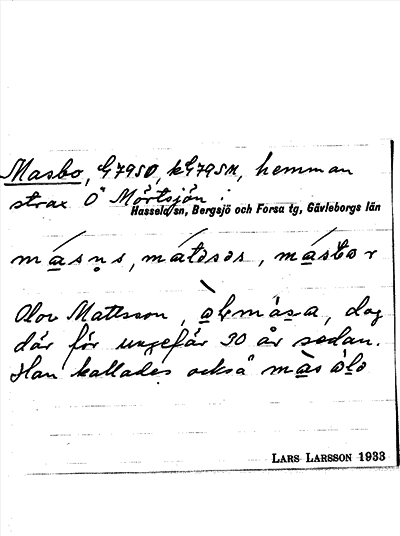 Masbo, G7950, kG795N, hemman
strax Ö Mörtsjön i
Hassela sn, Bergsjö och Forsa tg, Gävleborgs län
Olov Mattsson, dog
där för ungefär 30 år sedan.
Han kallades också
LARS LARSSON 1933